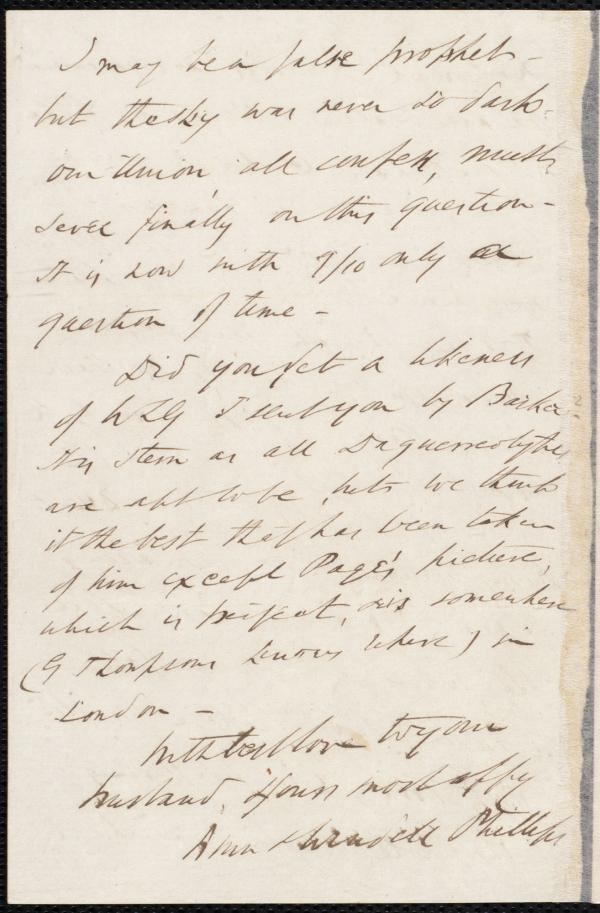 I may be a false prophet -
but the sky was never so dark -
our Union, all confess, must
sever finally on this question -
It is now with 9/10 only a
question of time -
Did you get a likeness
of WLG I sent you by Barker -
Tis stern as all Daguerreotypes
are apt to be, but we think
it the best that has been taken
of him except Page's picture,
which is perfect, & is somewhere
(G Thompson knows where) in
London -
With best love to your
husband, Yours most affy
Ann & Wendell Phillips